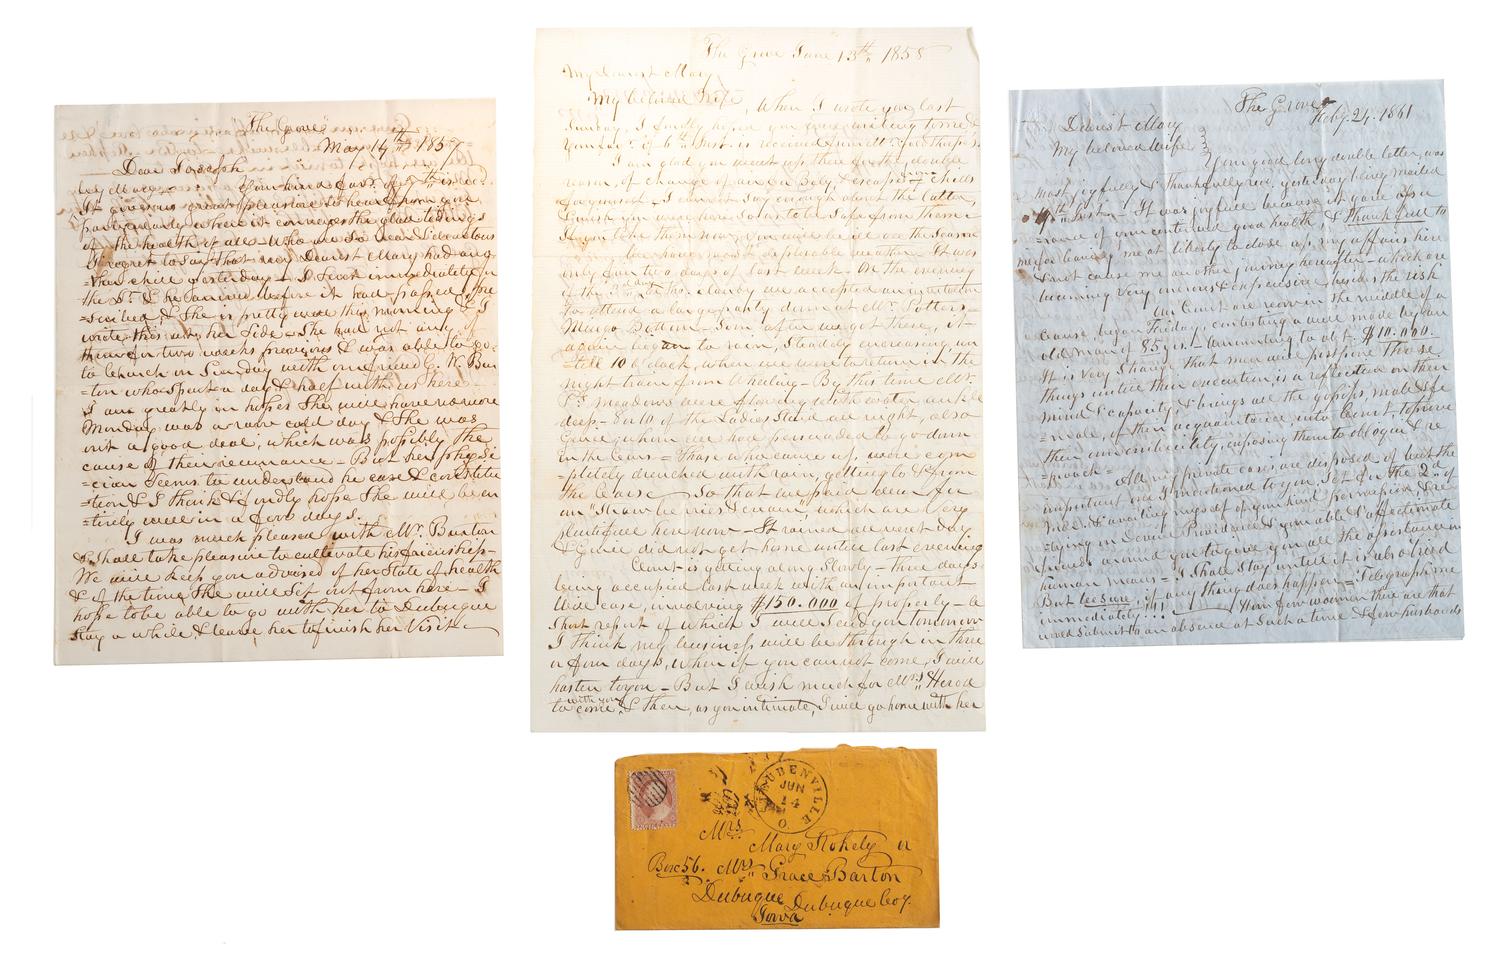 "The Grove"
May 14th 1857
Dear Joseph
It gives us great pleasure to hear from you
particularly when it conveys the glad tidings
of the health of all - Who are so near & dear to us
I regret to say that our Dearest Mary had an
other chill yesterday - I sent immediately for
the Dr. & he came before it had passed & pre
=scribed & She is pretty well this morning & I
wrote this at her side - She had not any of
them for two weeks previous & was able to go
to Church on Sunday with our friend G. W. Bar
=ton who spent a day & half with us here -
I am greatly in hopes She will have no more
Monday was a raw cold day & She was
out a good deal, which was possibly the
cause of their recurrence - But her physi
=cian seems to understand he case & constitu
=tion & I think & fondly hope She will be en
=tirely well in a few days.
I was much pleased with Mr. Barton
& shall take pleasure to cultivate his friendship -
We will keep you advised of her state of health
& of the time She will set out from here - I
hope to be able to go with her to Dubuque
stay a while & leave her to finish her Visit -
The Grove June 13th 1858
My Dearest Mary
My beloved Wife, When I wrote you last
Sunday, I fondly hoped you
I am glad you went up there for the double
reason, of change of air for Body, & escape
I cannot say enough about the latter
only fair two days of last week - On the evening
we accepted an invitation
to attend a large party down at Mr. Potters
Mingo Bottom - Soon after we got there, it
again began to rain, steadily increasing un
=till 10 o'clock, when we were to return in the
night train from Wheeling - By this time Mr.
P's meadows were flowing with water ankle
deep - 8 or 10 of the Ladies staid all night, also
Grace whom we had persuaded to go down
in the Cars = Those who came up, were com
=pletely drenched with rain, getting to & from
the Cars - So that we paid dear for
our "Strawberries & cream", which are very
plentiful here now - It rained all next day
& Grace did not get home until last evening
Court is getting along slowly - three days
being occupied last week with an important
Will case, involving $150.000 of property - a
short report of which I will send you tomorrow
I think my business will be through in three
or four days, when if you can not come, I will
hasten to you - But I wish much for Mrs. Herod
to come with you, & then, as you intimate, I will go home with her
The Grove
Feby. 24. 1861
Dearest Mary
My beloved Wife
Your good long double letter, was
most joyfully & thankfully rec'd yesterday being mailed
It was joyful because it gave assu
=rance of your continued good health & thankful to
me for leaving me at liberty to close up my affairs here
& not cause me another journey hereafter - which are
becoming very onerous & expensive besides the risk
Our Court are now in the middle of a
cause, began Friday, contesting a will made by an
old man of 85 yrs. - Amounting to abt. $10.000.
It is very strange that men will postpone those
things until their execution is a reflection on their
mind & capacity, & brings all the gossips, male & fe
=male, of their acquaintance, into Court to prove
their imbecility, exposing them to obloquy & re
=proach = All my private cases are disposed of but the
important one I mentioned to you, set for the 2nd of
Mch. & availing myself of your kind permission, & re
=lying on Divine Providence & your able & affectionate
friends around you to give you all the assistance in
human means = I shall stay until it is disposed
But be sure, if any thing does happen = Telegraph me
immediately!!! How few women there are that
would submit to an absence at such a time & few husbands
STEUBENVILLE
JUN
14
O.
Mrs.
Mary Stokely
Box 56. Mrs. Grace Barton
Dubuque Dubuque Coy.
Iowa